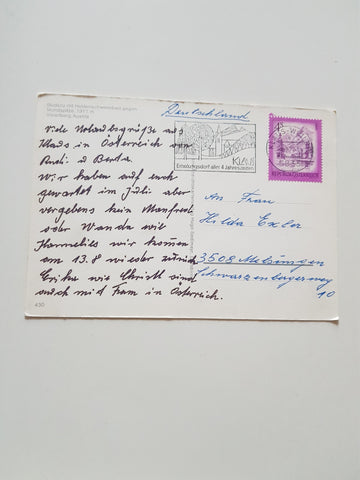 Mundspitze, 1971 m
Vorarlberg, Austria
Deutschland
Erholungsdorf aller 4 Jahreszeiten
KLAUS
REPUBLIK ÖSTERREICH
Viele Urlaubsgrüße aus
Klaus in Österreich von
Rudi u Berta.
Wir haben auf euch
gewartet im Juli aber
vergebens kein Manfred
oder Wanda mit
Hannelies wir kommen
am 13.8 wieder zurück
Erika wie Christl sind
auch mit Fam in Österreich.
An Frau
Hilda Exler
3508 Melsungen
Schwarzenbergerweg
10
450